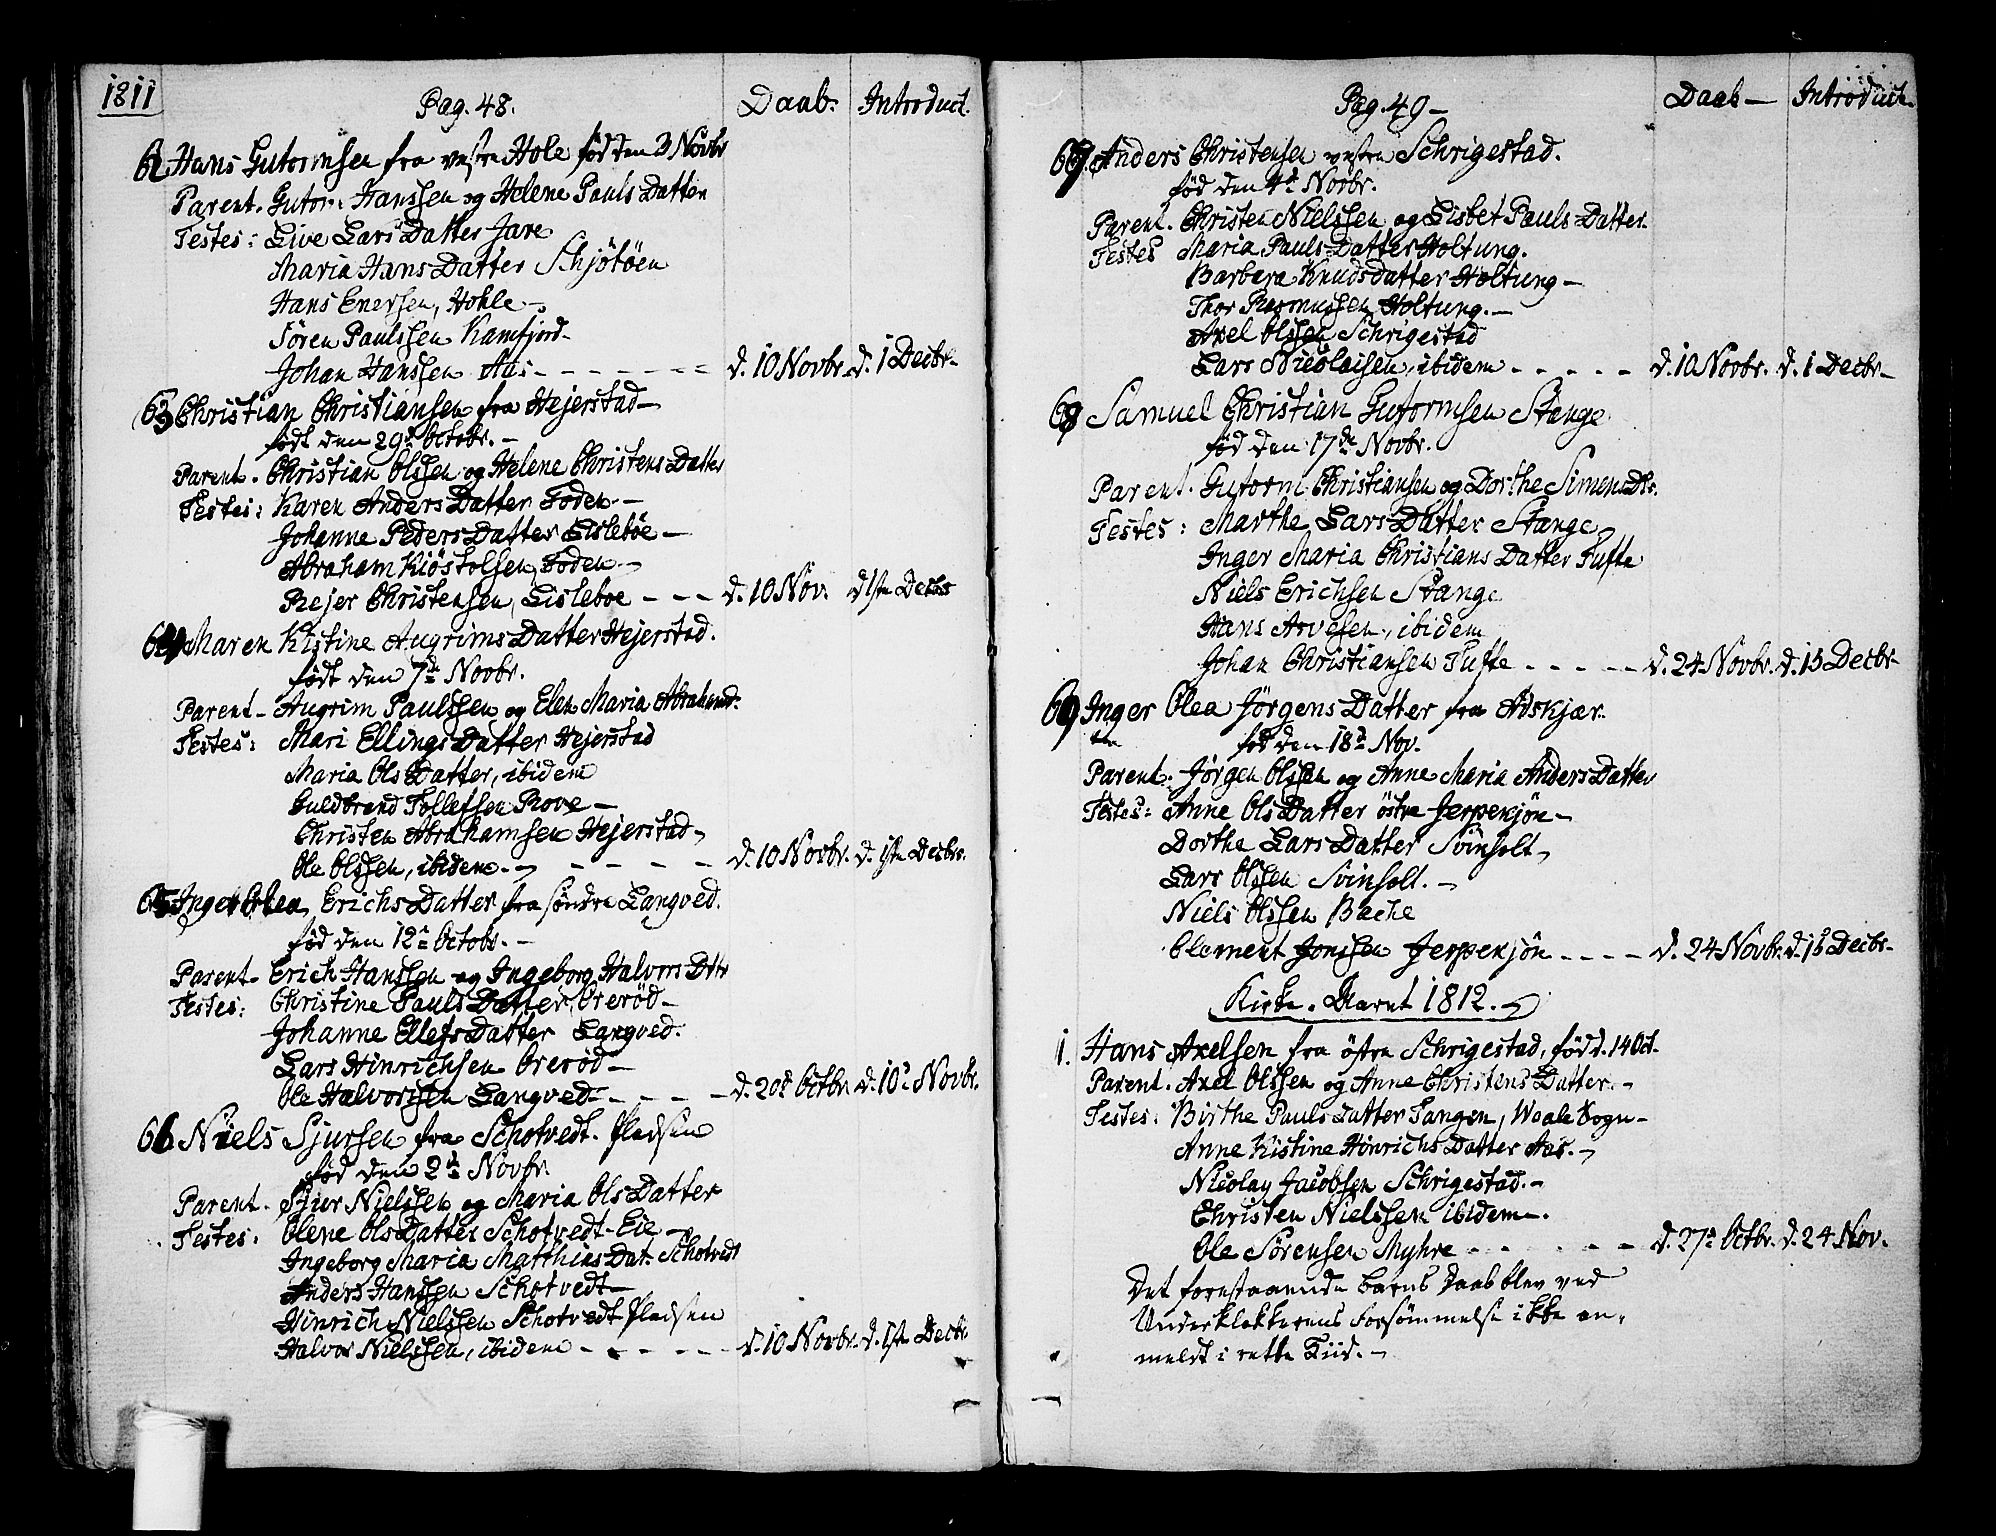 1811
Pag. 48. Daab. Introduct.
62 Hans Gutormsen fra vestre Hole fød den 3 Novbr
Parent. Gutorm Hanssen og Helene Pauls Datter
Testes: Live Lars Datter Jare
Maria Hans Datter Schjötöen
Hans Enersen, Hohle -
Sören Paulssen Kamfjord -
Johan Hanssen Aas - - - - - - - d. 10 Novbr. d. 1 Decbr -
63 Christian Christiansen fra Hejerstad -
født den 29d Octobr. -
Parent. Christian Olssen og Helene Christens Datter
Testes: Karen Anders Datter Foden -
Johanne Peders Datter Lisleböe -
Abraham Kiöstolsen, Foden -
Rejer Christensen, Lisleboe - - - d. 10 Nov. d 1ste Decbr
64 Maren Kistine Augrims Datter Hejerstad.
født den 7d Novbr.
Parent - Augrim Paulssen og Elen Maria Abrahamsd.
Testes: Mari Ellings Datter Hejerstad
Maria Ols Datter, ibidem
Guldbrand Tollefsen Rove -
Christen Abrahamsen Hejerstad -
Ole Olssen, ibidem - - - - - d. 10 Novbr. d. 1ste Decbr.
65 Inger Olea Erichs Datter fra söndre Langved.
fød den 12d Octobr. -
Parent - Erich Hanssen og Ingeborg Halvors Dttr
Testes: Christine Pauls Datter, Orerød -
Johanne Ellefs Datter Langved.
Lars Hinrichsen Orerød -
Ole Halvorssen Langved - - - - d. 20d Octbr. d. 10d Novbr.
66 Niels Sjursen fra Schotvedt. Pladsen
fød den 2d Novbr
Parent. Sjur Nielssen og Maria Ols Datter
Testes: Olene Ols Datter Schotvedt-Eie -
Ingeborg Maria Matthias Dat. Schotvedt
Anders Hanssen Schotvedt -
Hinrich Nielssen Schotvedt Pladsen
Halvor Nielssen, ibidem - - - - - d. 10 Novbr. d. 1ste Decbr
Pag. 49 - Daab - Introduct.
67. Anders Christensen vestre Schrigestad.
fød den 4d Novbr.
Parent. Christen Nielssen og Lisbet Pauls Datter.
Testes Maria Pauls Datter Holtung.
Barbara Knuds datter Holtung -
Thor Rasmussen Holtung. -
Axel Olssen Schrigestad
Lars Nicolaisen, ibidem - - - - - d. 10 Novbr. d. 1 Decbr -
68 Samuel Christian Gutormsen Stange
fød den 17de Novbr.
Parent. Gutorm Christiansen og Dorthe Simons Dtr.
Testes: Marthe Lars Datter Stange -
Inger Maria Christians Datter Tufte
Niels Erichsen Stange
Hans Arvesen, ibidem
Johan Christiansen Tufte - - - - - d. 24 Novbr. d. 15 Decbr -
69 Inger Olea Jörgens Datter fra Adskjær.
fød den 18d Nov.
Parent. Jörgen Olssen og Anne Maria Anders Datter
Testes: Anne Ols Datter östre Jerpekjön -
Dorthe Lars Datter Svinsolt -
Lars Olssen Svinsolt. -
Niels Olssen Bache
Clement Jonssen Jerpekjön - - - - d. 24 Novbr. d. 15 Decbr -
Kirke-Aaret 1812.
1. Hans Axelsen fra östre Schrigestad, fød d. 14 Oct.
Parent. Axel Olssen og Anne Christens Datter. -
Testes: Birthe Pauls Datter Tangen, Waale Sogn -
Anne Kistine Hinrichs Datter Aas. -
Nicolay Jacobsen Schrigestad. -
Christen Nielssen ibidem -.
Ole Sörensen Myhre - - - - - d. 27d Octbr. d. 24 Nov.
Det forestaaende Barns Daab blev ved
Underklokkerens Forsömmelse ikke an-
meldt i rette Tiid. -